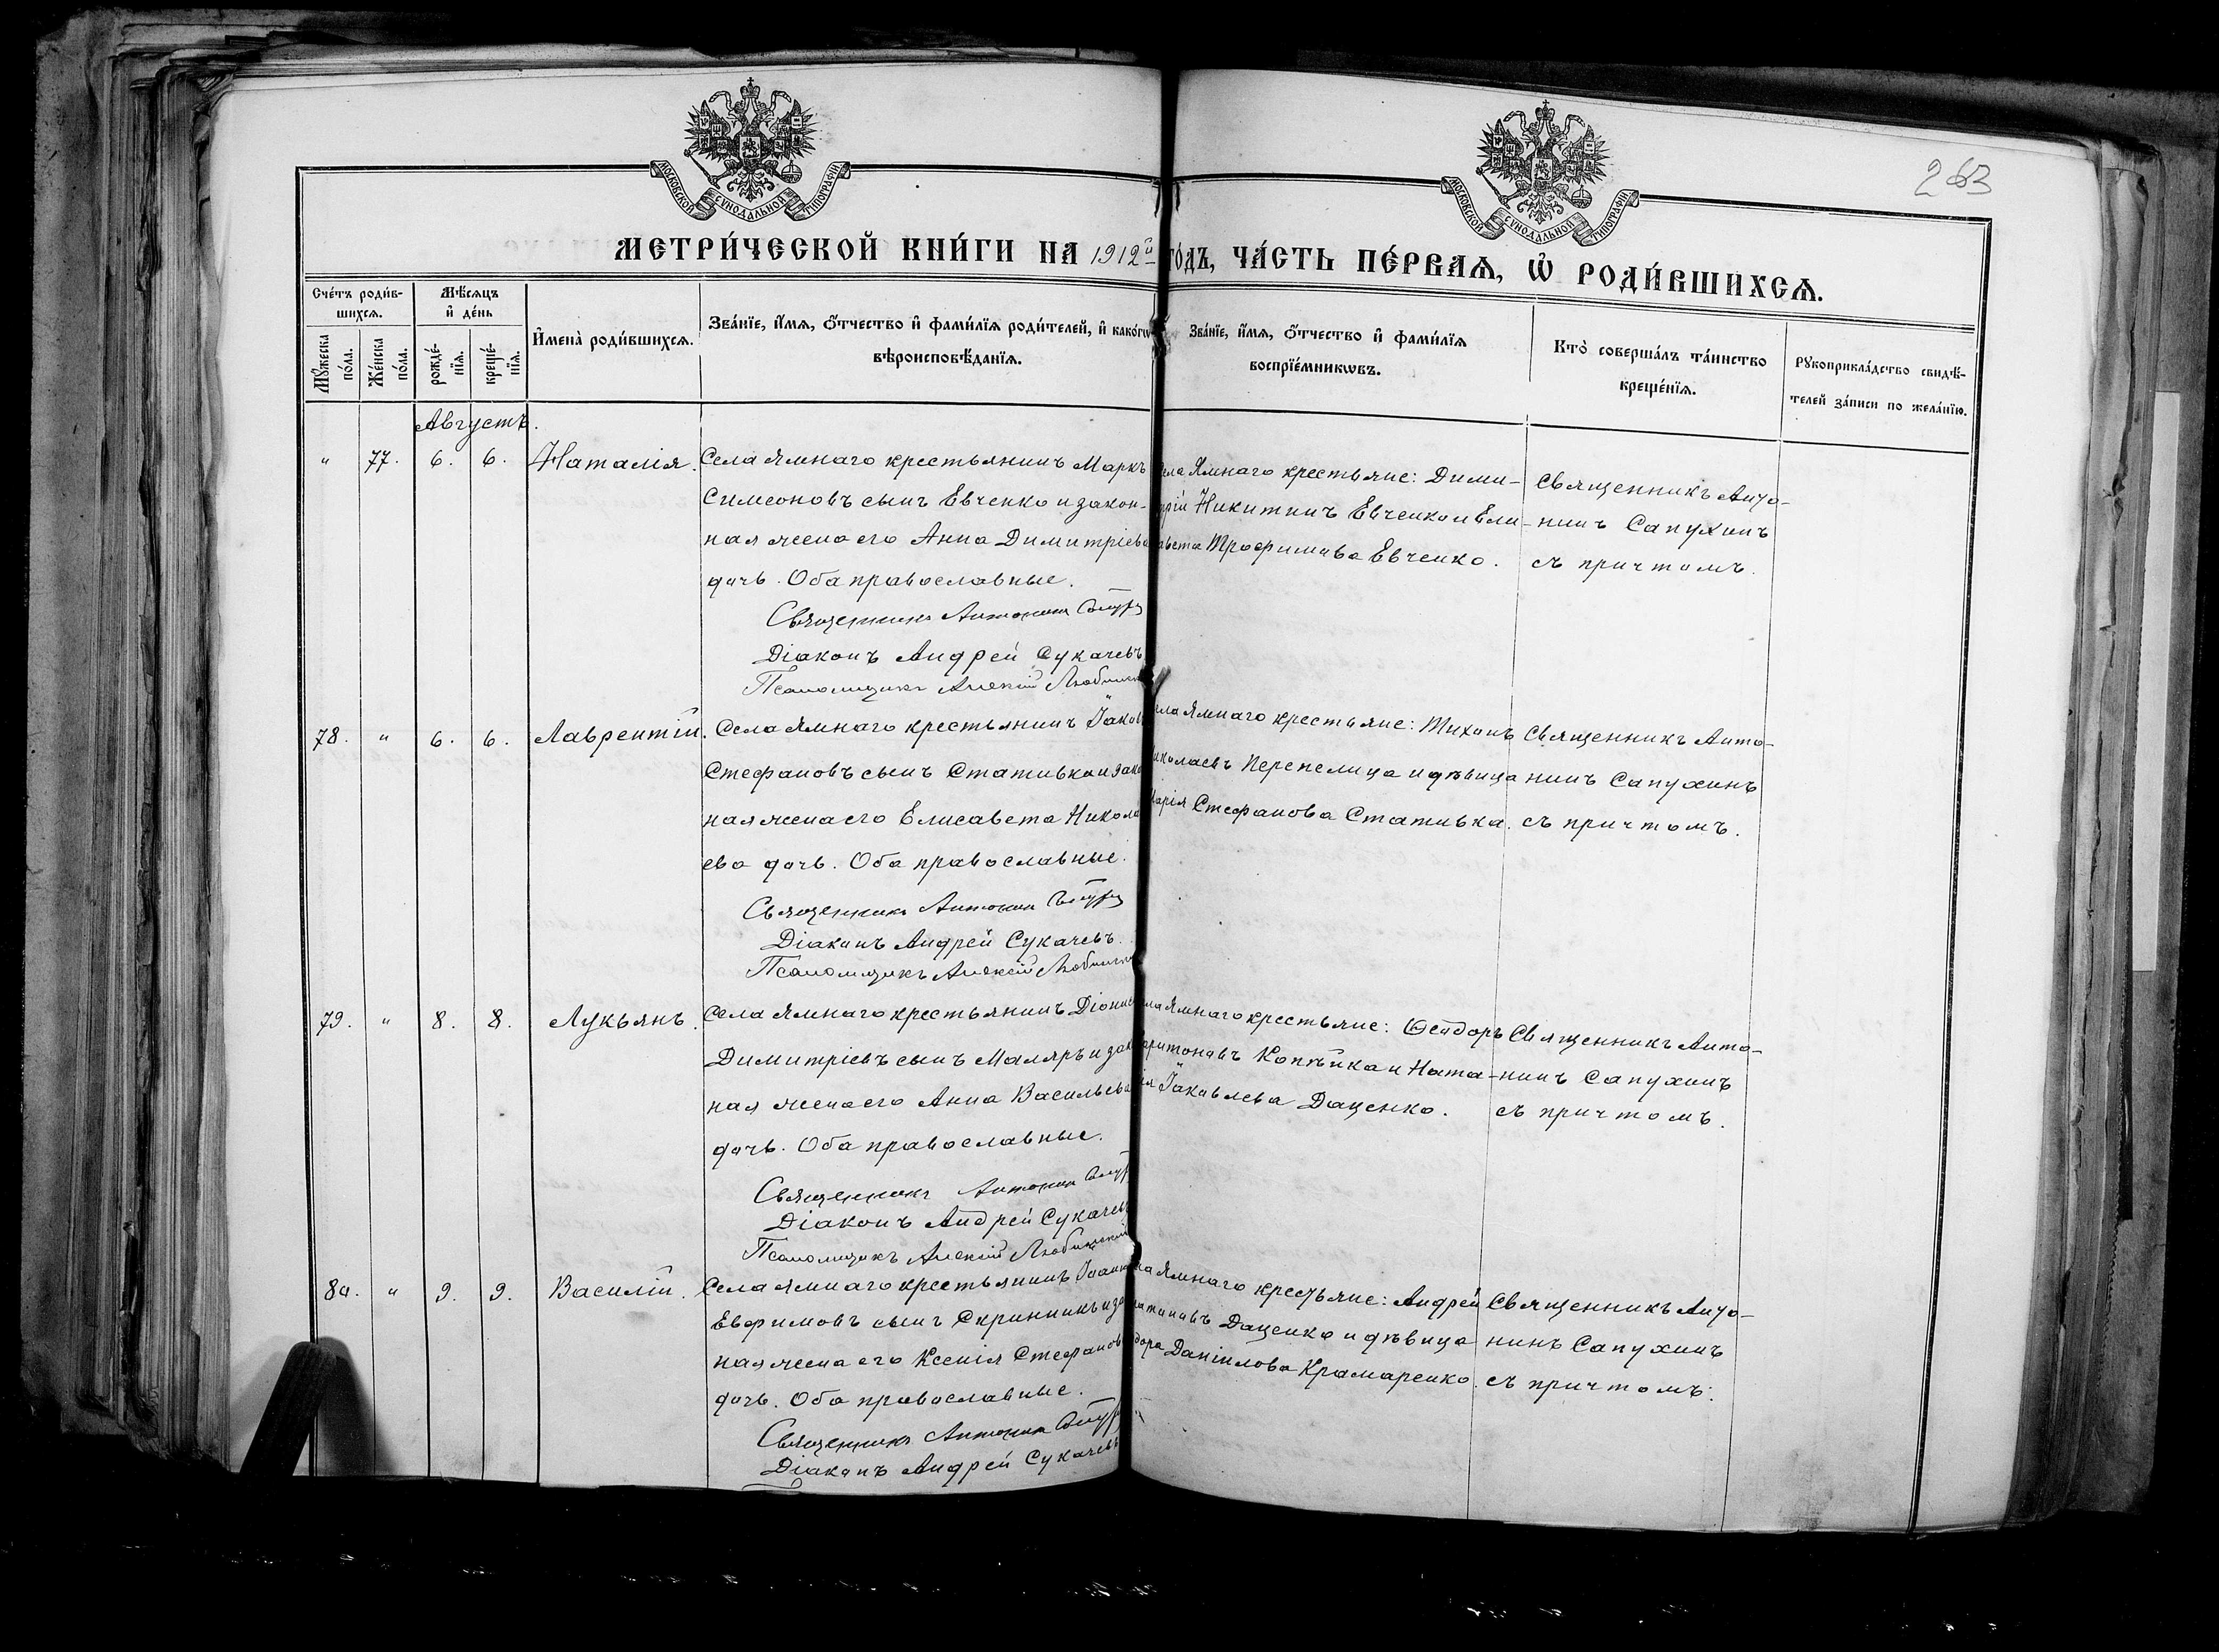 МОСКОВСКОЙ СѴНОДАЛЬНОЙ ТИПОГРАФІИ
МОСКОВСКОЙ СѴНОДАЛЬНОЙ ТИПОГРАФІИ
263
МЕТРИ́ЧЕСКОЙ КНИ́ГИ НА 1912й ГО́ДЪ, ЧА́СТЬ ПЕ́РВАѦ, Ѡ҆ РОДИ́ВШИХСѦ.
Сче́тъ роди́в-
шихсѧ.
Мѣ́сѧцъ
и҆ де́нь
Мꙋ́жеска
по́ла.
Же́нска
по́ла.
рожде́-
нїѧ.
креще́-
нїѧ.
И҆мена̀ роди́вшихсѧ.
Зва́нїе, и҆́мѧ, ѻ҆́тчество и҆ фами́лїѧ роди́телей, и҆ како́гѡ
вѣроисповѣ́данїѧ.
Зва́нїе, и҆́мѧ, ѻ҆́тчество и҆ фами́лїѧ
воспрїе́мникѡвъ.
Кто̀ соверша́лъ та́инство
креще́нїѧ.
Рꙋкоприкла́дство свидѣ́-
телей за́писи по жела́нїю.
Августъ.
" 77. 6. 6. Наталія.
Села Ямнаго крестьянинъ Маркъ
Симеоновъ сынъ Евченко и закон-
ная жена его Анна Димитріева
дочь. Оба православные.
Священникъ Антонинъ
Діаконъ Андрей Сукачевъ
Псаломщикъ Алексій
Ямнаго крестьяне: Дими-
трій Никитинъ Евченко и Ели-
Трофимова Евченко.
Священникъ Анто-
нинъ Сапухинъ
съ причтомъ.
78. " 6. 6. Лаврентій.
Села Ямнаго крестьянинъ Іаков
Стефановъ сынъ Стативка и зако
ная жена его Елисавета Никола
ева дочь. Оба православные.
Священникъ Антонинъ
Діаконъ Андрей Сукачевъ.
Псаломщикъ Алексій
Ямнаго крестьяне: Тихонъ
иколаевъ Перепелица и дѣвица
Марія Стефанова Стативка.
Священникъ Анто-
нинъ Сапухинъ
съ причтомъ.
79. " 8. 8. Лукьянъ.
Села Ямнаго крестьянинъ Діонис
Димитріевъ сынъ Маляръ и зак
ная жена его Анна Васильева
дочь. Оба православные.
Священникъ Антонинъ
Діаконъ Андрей Сукачевъ
Псаломщикъ Алексій
Ямнаго крестьяне: Ѳеодоръ
аритоновъ Копѣйка и Ната-
лія Іаковлева Даценко.
Священникъ Анто-
нинъ Сапухинъ
съ причтомъ.
80. " 9. 9. Василій.
Села Ямнаго крестьянинъ Іоанн
Евфимовъ сынъ Скринникъ и за
ная жена его Ксенія Стефанов
дочь. Оба православные.
Священникъ Антонинъ
Діаконъ Андрей Сукачевъ
Ямнаго крестьяне: Андрей
Даценко и дѣвица
Даніилова Крамаренко.
Священникъ Анто-
нинъ Сапухинъ
съ причтомъ.